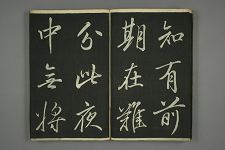 知有前
期在難
分此夜
中無將